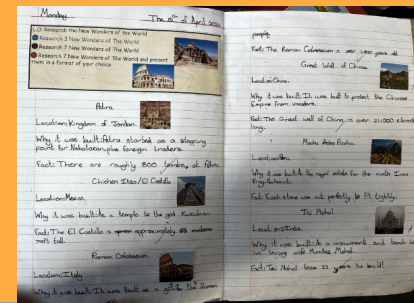 Monday
The 8th of April 2024
L.O: Research the New Wonders of the World
Research 3 New Wonders of The World
Research 7 New Wonders of The World
Research 7 New Wonders of The World and present them in a format of your choice
Petra
Location: Kingdom of Jordan.
Why it was built: Petra started as a stopping
point for Nabataean plus foreign traders.
Fact: There are roughly 800 tombs at Petra
Chichen Itza/El Castillo
Location: Mexico.
Why it was built: As a temple to the god Kukulcan.
Fact: The El Castillo is approximately
tall.
Roman Colosseum
Location: Italy
Why it was built: It was built as a gift to the Roman
people.
Fact: The Roman Colosseum is over 1,900 years old.
Great Wall of China
Location: China.
Why it was built: It was built to protect the Chinese
Empire from invaders.
Fact: The Great wall of China is over 21,000 kilometres
long.
Machu Picchu
Location: Peru.
Why it was built: As royal estate for the ninth Inca
King Pachacuti.
Fact: Each stone was cut perfectly to fit tightly.
Taj Mahal
Location: India
Why it was built: As a monument and tomb to
his loving wife Mumtaz Mahal.
Fact: Taj Mahal took 22 years to build!